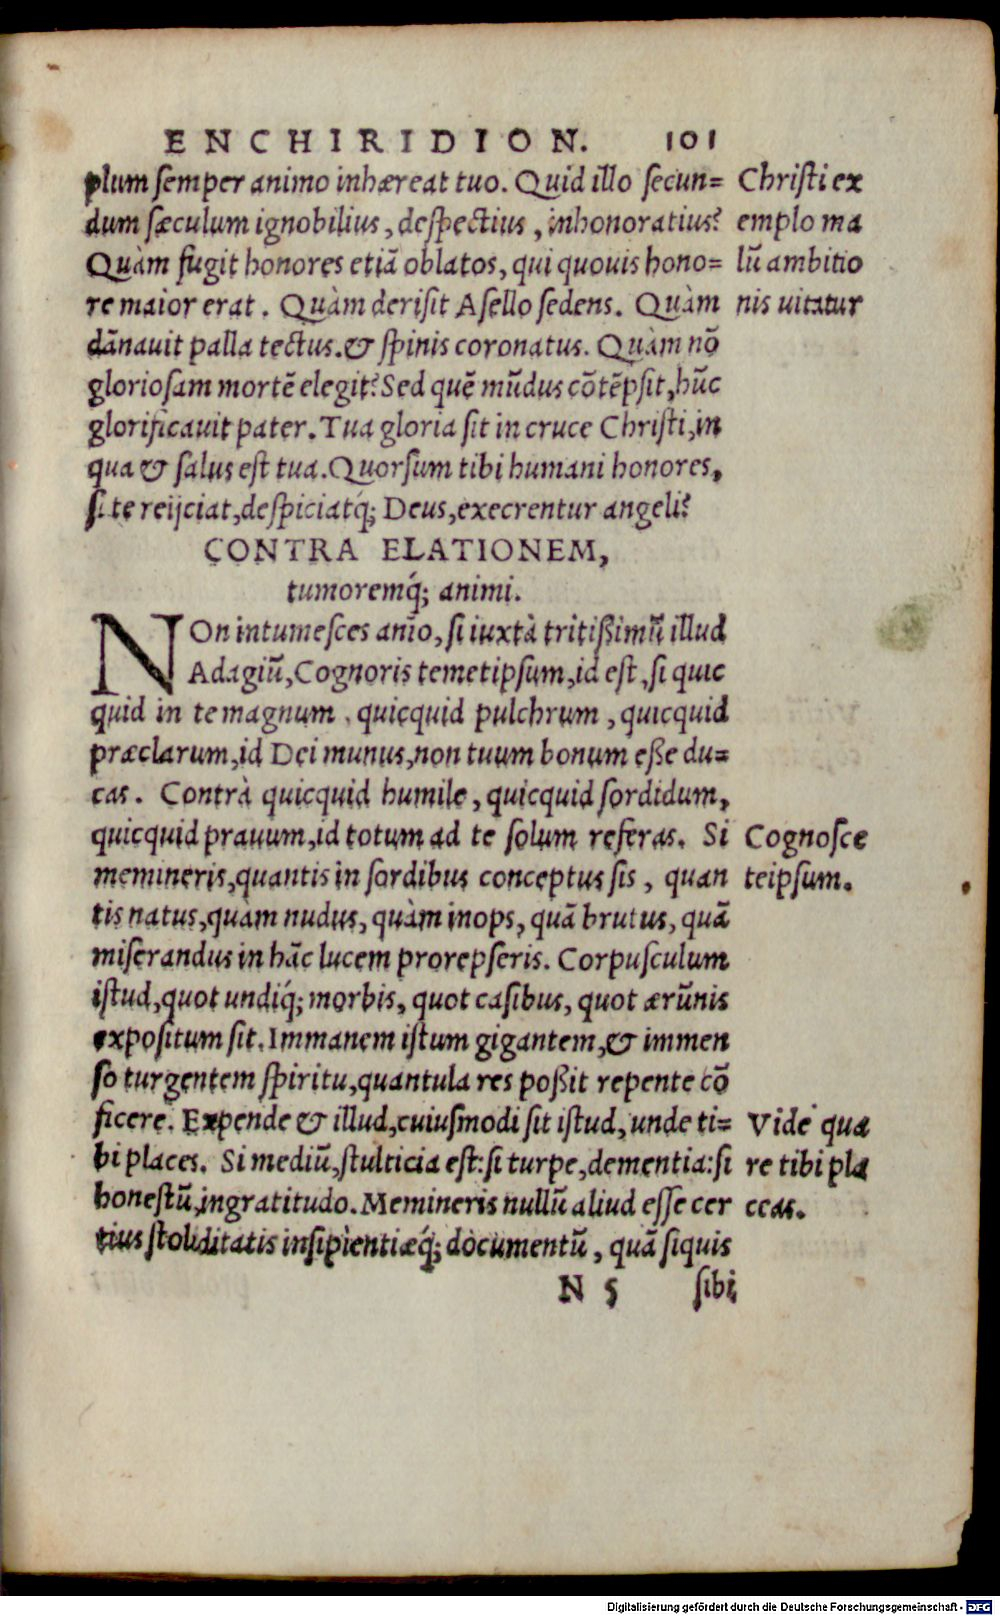 ENCHIRIDION. 101
plum ſemper animo inhæreat tuo. Quid illo ſecun=
dum ſæculum ignobilius, deſpectius, inhonoratius?
Quàm fugit honores etiã oblatos, qui quouis hono=
re maior erat. Quàm deriſit Aſello ſedens. Quàm
dãnauit palla tectus. & ſpinis coronatus. Quàm nõ
glorioſam mortẽ elegit? Sed quẽ mũdus cõtẽpſit, hũc
glorificauit pater. Tua gloria ſit in cruce Chriſti, in
qua & ſalus eſt tua. Quorſum tibi humani honores,
ſi te reijciat, deſpiciatq́; Deus, execrentur angeli?
Chriſti ex
emplo ma
lũ ambitio
nis uitatur
CONTRA ELATIONEM,
tumoremq́; animi.
NOn intumeſces anĩo, ſi iuxtà tritißimũ illud
Adagiũ, Cognoris temetipſum, id eſt, ſi quic
quid in te magnum, quicquid pulchrum, quicquid
præclarum, id Dei munus, non tuum bonum eße du=
cas. Contrà quicquid humile, quicquid ſordidum,
quicquid prauum, id totum ad te ſolum referas. Si
memineris, quantis in ſordibus conceptus ſis, quan
tis natus, quàm nudus, quàm inops, quã brutus, quã
miſerandus in hãc lucem prorepſeris. Corpuſculum
iſtud, quot undiq́; morbis, quot caſibus, quot ærũnis
expoſitum ſit. Immanem iſtum gigantem, & immen
ſo turgentem ſpiritu, quantula res poßit repente cõ
ficere. Expende & illud, cuiuſmodi ſit iſtud, unde ti=
bi places. Si mediũ, ſtulticia eſt: ſi turpe, dementia: ſi
honeſtũ, ingratitudo. Memineris nullũ aliud eſſe cer
tius ſtoliditatis inſipientiæq́; documentũ, quã ſiquis
Cognoſce
teipſum.
Vide qua
re tibi pla
ceas.
N 5 ſibi
Digitalisierung gefördert durch die Deutsche Forschungsgemeinschaft - DFG